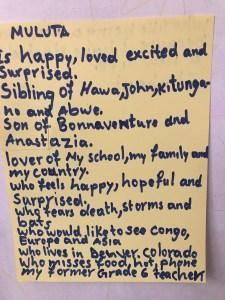 MULUTA
Is happy, loved excited and
Surprised.
Sibling of Hawa, John, Kitunga-
no and Abwe.
Son of Bonnaventure and
Anastazia.
lover of My school, my family and
my country.
who feels happy, hopeful and
Surprised.
who fears death, storms and
bats
who would like to see Congo,
Europe and Asia
who lives in Denver. Colorado
who misses food, hot, phone
my former Grade 6 teacher